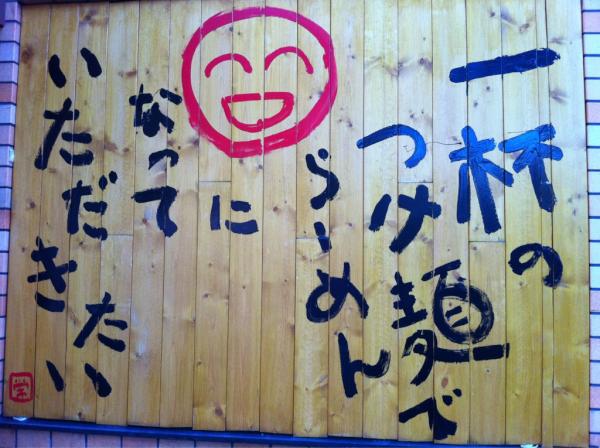 一杯の
つけ麺で
らーめん
に
なって
いただきたい